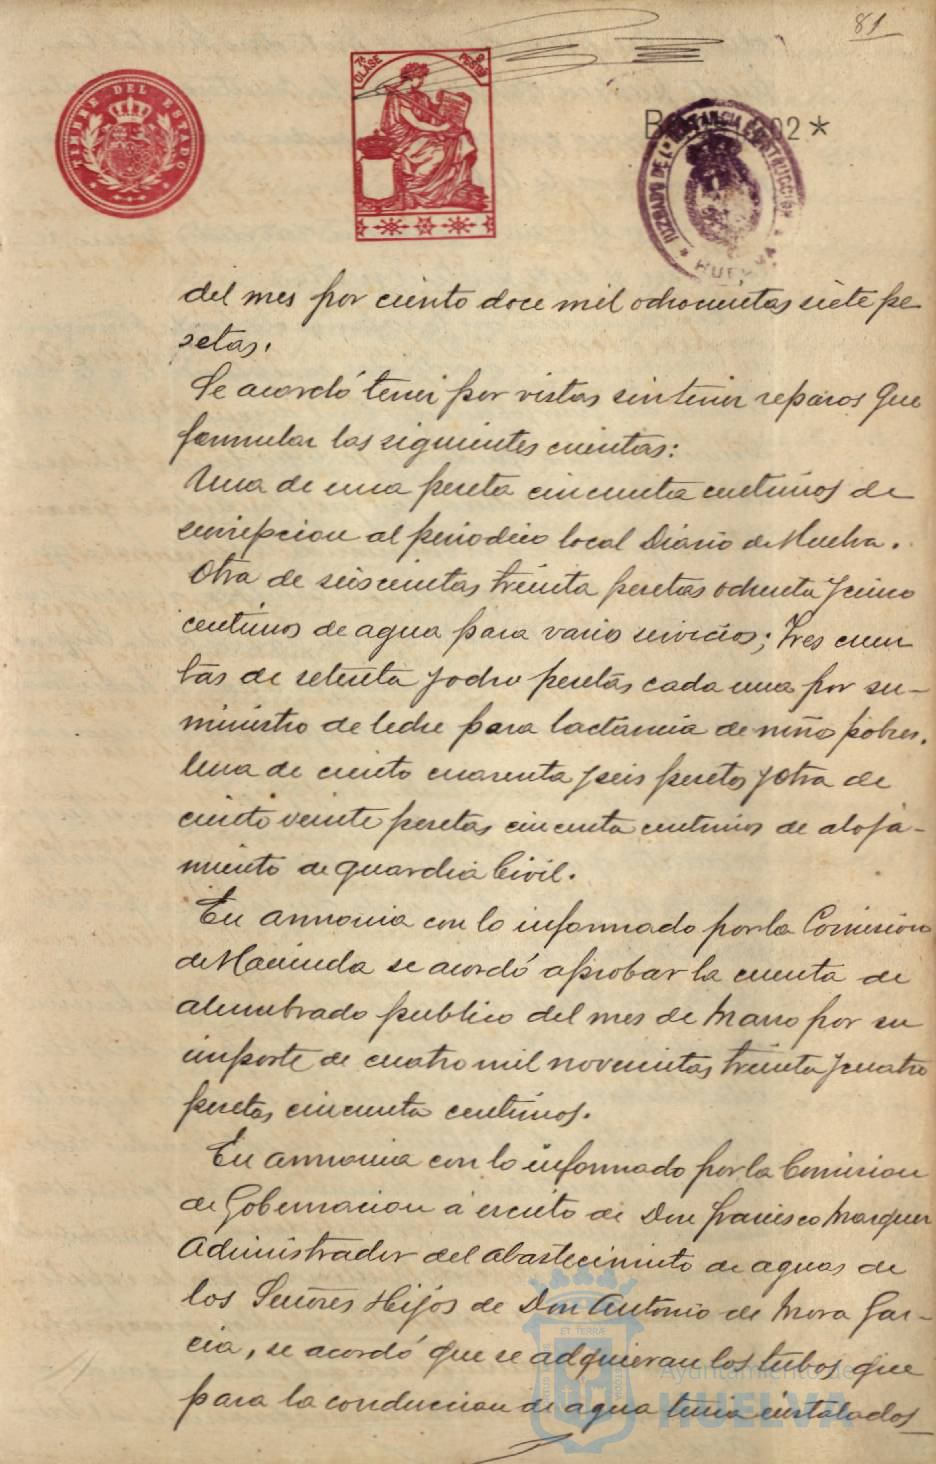 81
TIMBRE DEL ESTADO
7ª CLASE
PESTAS
02*
JUZGADO DE 1ª INSTANCIA E INSTRUCCIÓN
* HUELVA *
del mes por ciento doce mil ochocientas siete pe
setas.
Se acordó tener por vistas sin tener reparos que
formular las siguientes cuentas:
Una de una peseta cincuenta centimos de
suscripcion al periodico local Diario de Huelva.
Otra de seiscientas treinta pesetas ochenta y cinco
centimos de agua para varios servicios; tres cuen
tas de setenta y ocho pesetas cada una por su-
ministro de leche para lactancia de niños pobres.
Una de ciento cuarenta y seis pesetas y otra de
ciento veinte pesetas cincuenta centimos de aloja-
miento de guardia Civil.
En armonia con lo informado por la Comision
de Hacienda se acordó aprobar la cuenta de
alumbrado publico del mes de Marzo por su
importe de cuatro mil novecientas treinta y cuatro
pesetas cincuenta centimos.
En armonia con lo informado por la Comision
de Gobernacion á escrito de Don Francisco Marquez
Administrador del abastecimiento de aguas de
los Señores Hijos de Don Antonio de Mora Gar-
cia, se acordó que se adquieran los tubos que
para la conduccion de agua tenia instalados
Ayuntamiento de
HUELVA